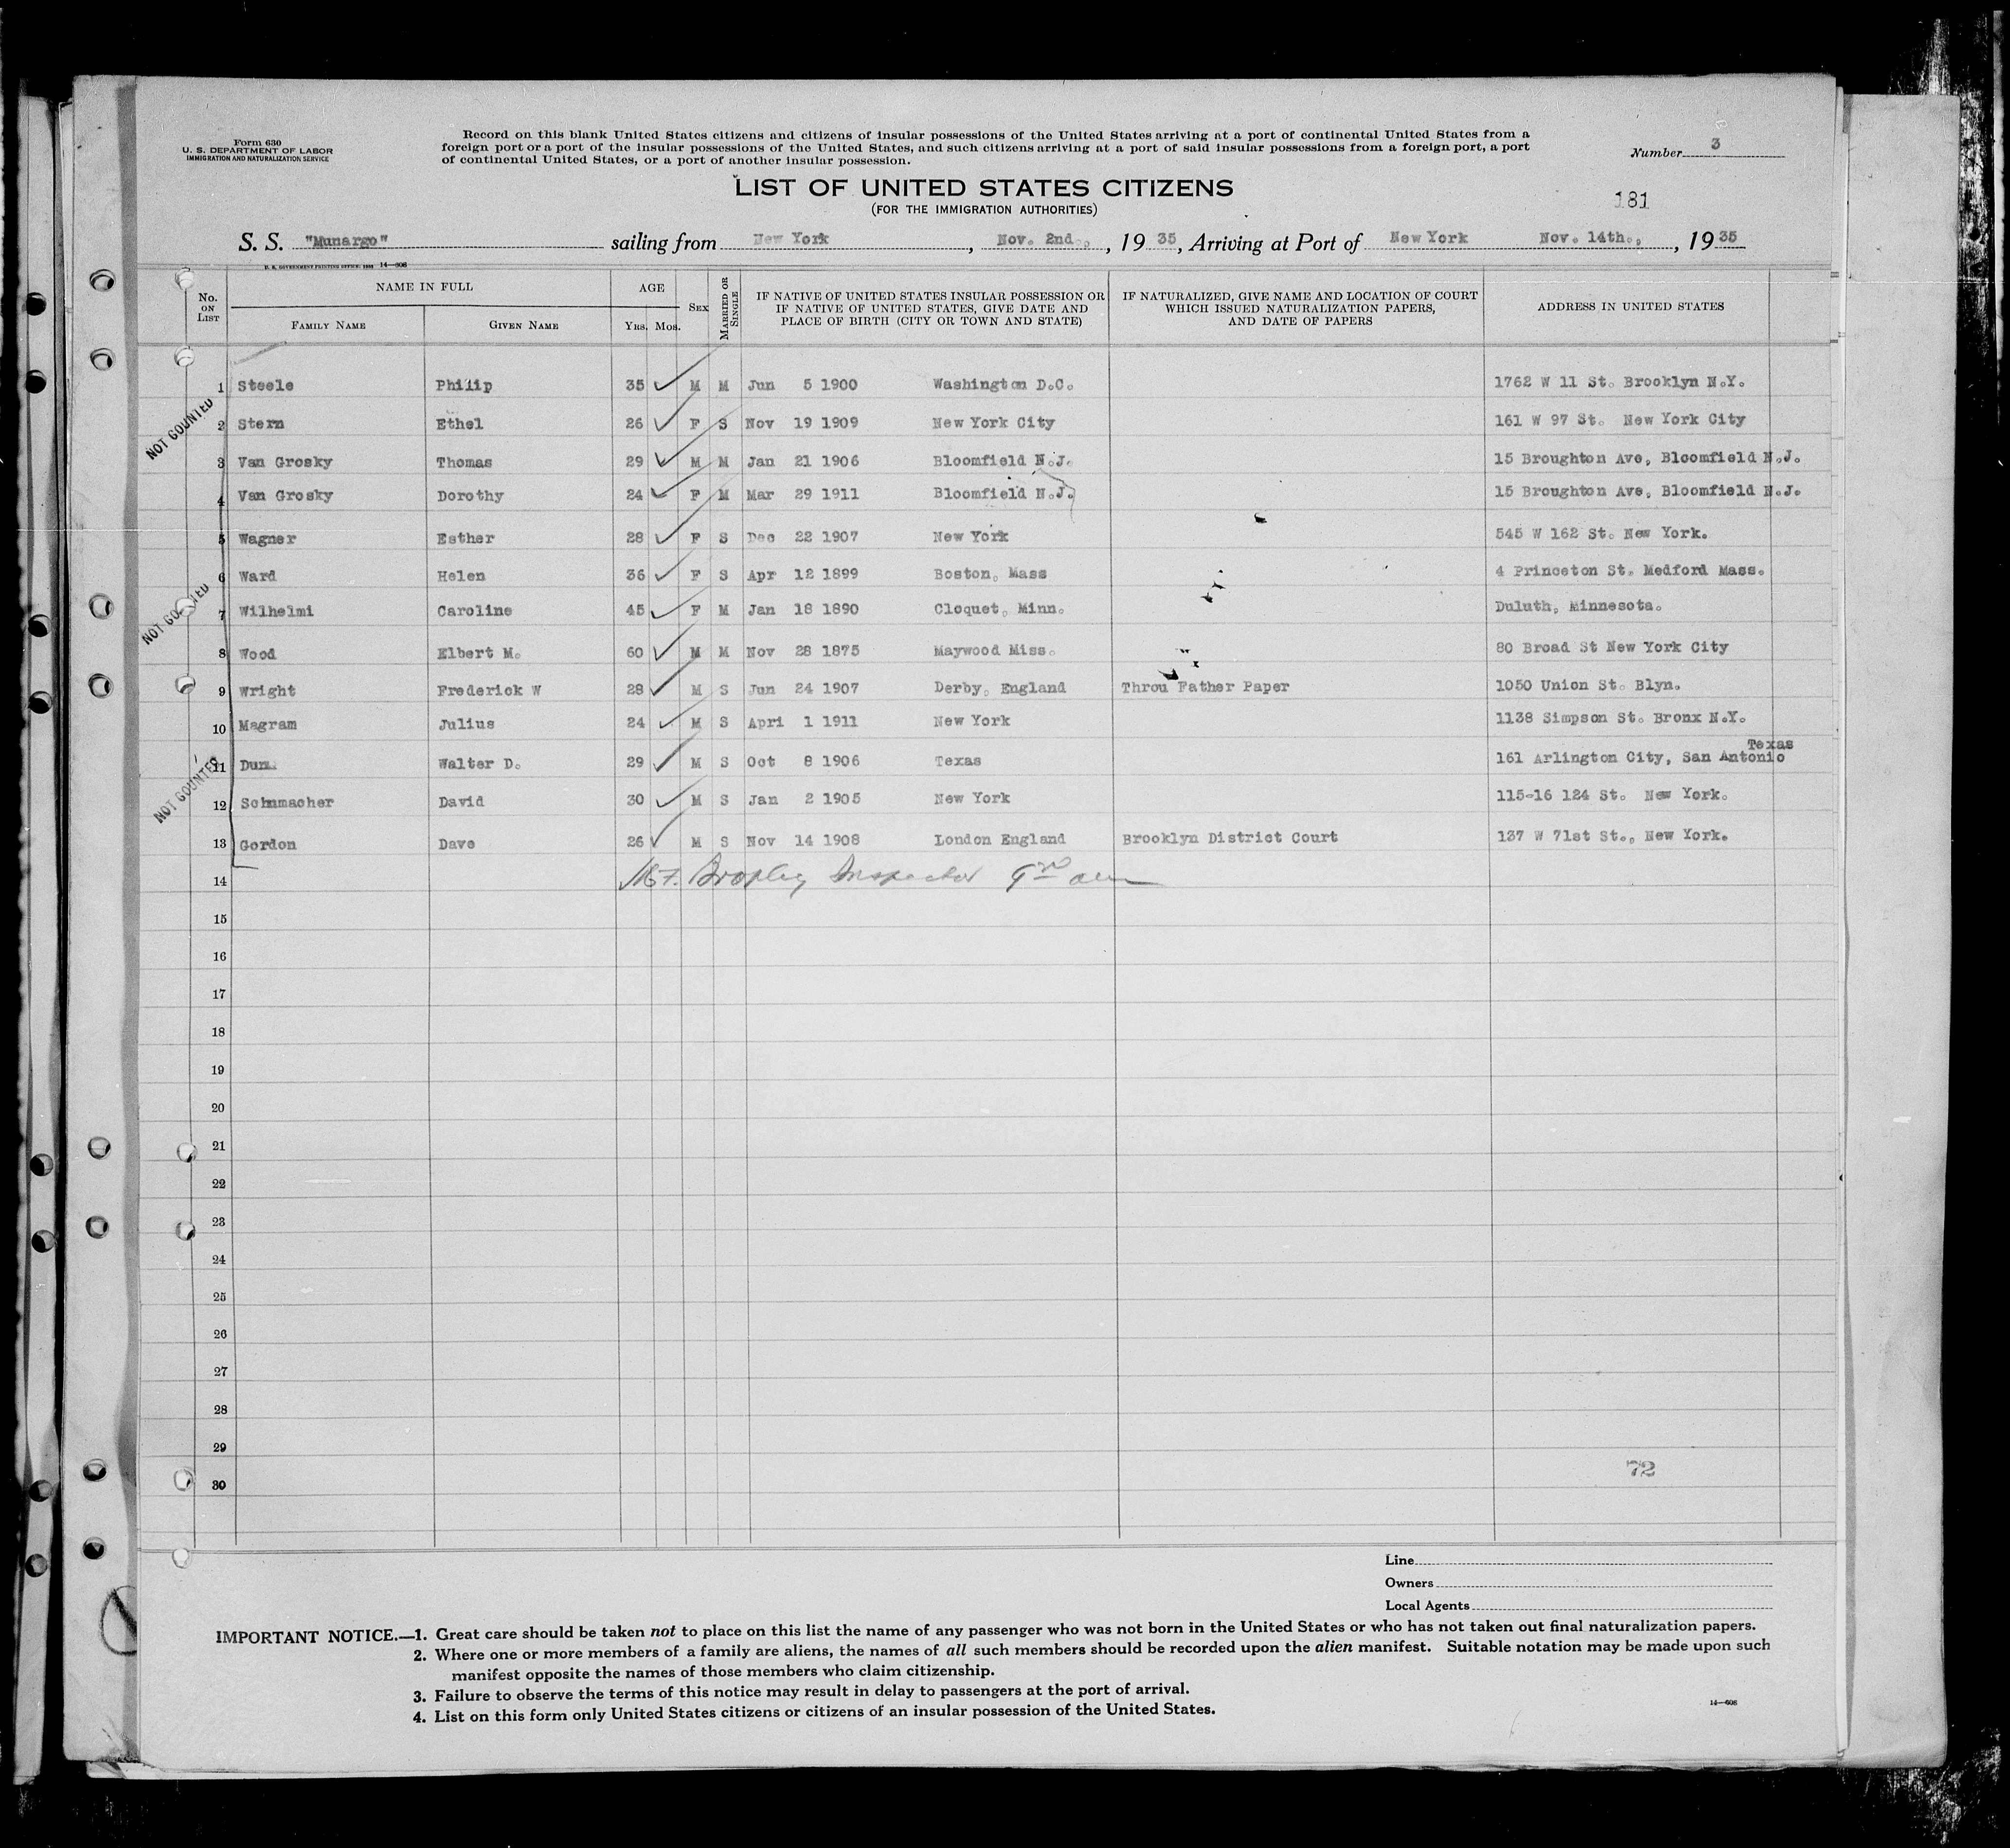 Form 630
U. S. DEPARTMENT OF LABOR
IMMIGRATION AND NATURALIZATION SERVICE
Record on this blank United States citizens and citizens of insular possessions of the United States arriving at a port of continental United States from a
foreign port or a port of the insular possessions of the United States, and such citizens arriving at a port of said insular possessions from a foreign port, a port
of continental United States, or a port of another insular possession.
Number 3
LIST OF UNITED STATES CITIZENS
(FOR THE IMMIGRATION AUTHORITIES)
181
S. S. "Munargo" sailing from New York, Nov. 2nd., 1935, Arriving at Port of New York Nov. 14th., 1935
U. S. GOVERNMENT PRINTING OFFICE: 14—608
No. ON LIST
NAME IN FULL
FAMILY NAME GIVEN NAME
AGE
YRS. MOS.
SEX
MARRIED OR SINGLE
IF NATIVE OF UNITED STATES INSULAR POSSESSION OR
IF NATIVE OF UNITED STATES, GIVE DATE AND
PLACE OF BIRTH (CITY OR TOWN AND STATE)
IF NATURALIZED, GIVE NAME AND LOCATION OF COURT
WHICH ISSUED NATURALIZATION PAPERS,
AND DATE OF PAPERS
ADDRESS IN UNITED STATES
1 Steele Philip 35 M M Jun 5 1900 Washington D.C. 1762 W 11 St. Brooklyn N.Y.
NOT COUNTED
2 Stern Ethel 26 F S Nov 19 1909 New York City 161 W 97 St. New York City
3 Van Grosky Thomas 29 M M Jan 21 1906 Bloomfield N.J. 15 Broughton Ave, Bloomfield N.J.
4 Van Grosky Dorothy 24 F M Mar 29 1911 Bloomfield N.J. 15 Broughton Ave, Bloomfield N.J.
5 Wagner Esther 28 F S Dec 22 1907 New York 545 W 162 St. New York.
6 Ward Helen 36 F S Apr 12 1899 Boston, Mass 4 Princeton St. Medford Mass.
NOT COUNTED
7 Wilhelmi Caroline 45 F M Jan 18 1890 Cloquet, Minn. Duluth, Minnesota.
8 Wood Elbert M. 60 M M Nov 28 1875 Maywood Miss. 80 Broad St New York City
9 Wright Frederick W 28 M S Jun 24 1907 Derby, England Throu Father Paper 1050 Union St. Blyn.
10 Magram Julius 24 M S Apri 1 1911 New York 1138 Simpson St. Bronx N.Y.
Texas
11 Dunn Walter D. 29 M S Oct 8 1906 Texas 161 Arlington City, San Antonio
NOT COUNTED
12 Schmmacher David 30 M S Jan 2 1905 New York 115-16 124 St. New York.
13 Gordon Dave 26 M S Nov 14 1908 London England Brooklyn District Court 137 W 71st St., New York.
14 Inspector
15
16
17
18
19
20
21
22
23
24
25
26
27
28
29
72
30
Line
Owners
Local Agents
IMPORTANT NOTICE.—1. Great care should be taken not to place on this list the name of any passenger who was not born in the United States or who has not taken out final naturalization papers.
2. Where one or more members of a family are aliens, the names of all such members should be recorded upon the alien manifest. Suitable notation may be made upon such
manifest opposite the names of those members who claim citizenship.
3. Failure to observe the terms of this notice may result in delay to passengers at the port of arrival.
4. List on this form only United States citizens or citizens of an insular possession of the United States.
14—608